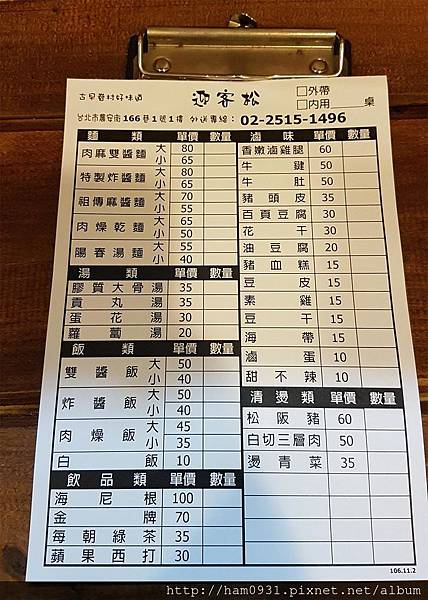 古早眷村好味道
迎客松
□外帶
□內用____桌
台北市農安街166巷1號1樓 外送專線：02-2515-1496
麵類 單價 數量
肉麻雙醬麵 大 80
小 65
特製炸醬麵 大 80
小 65
祖傳麻醬麵 大 70
小 55
肉燥乾麵 大 65
小 50
陽春湯麵 大 55
小 40
湯類 單價 數量
膠質大骨湯 35
貢丸湯 35
蛋花湯 30
蘿蔔湯 20
飯類 單價 數量
雙醬飯 大 50
小 40
炸醬飯 大 50
小 40
肉燥飯 大 45
小 35
白飯 10
飲品類 單價 數量
海尼根 100
金牌 70
每朝綠茶 35
蘋果西打 30
滷味 單價 數量
香嫩滷雞腿 60
牛鍵 50
牛肚 50
豬頭皮 35
百頁豆腐 30
花干 30
油豆腐 20
豬血糕 15
豆皮 15
素雞 15
豆干 15
海帶 15
滷蛋 10
甜不辣 10
清燙類 單價 數量
松阪豬 60
白切三層肉 50
燙青菜 35
106.11.2
http://ham0931.pixnet.net/album